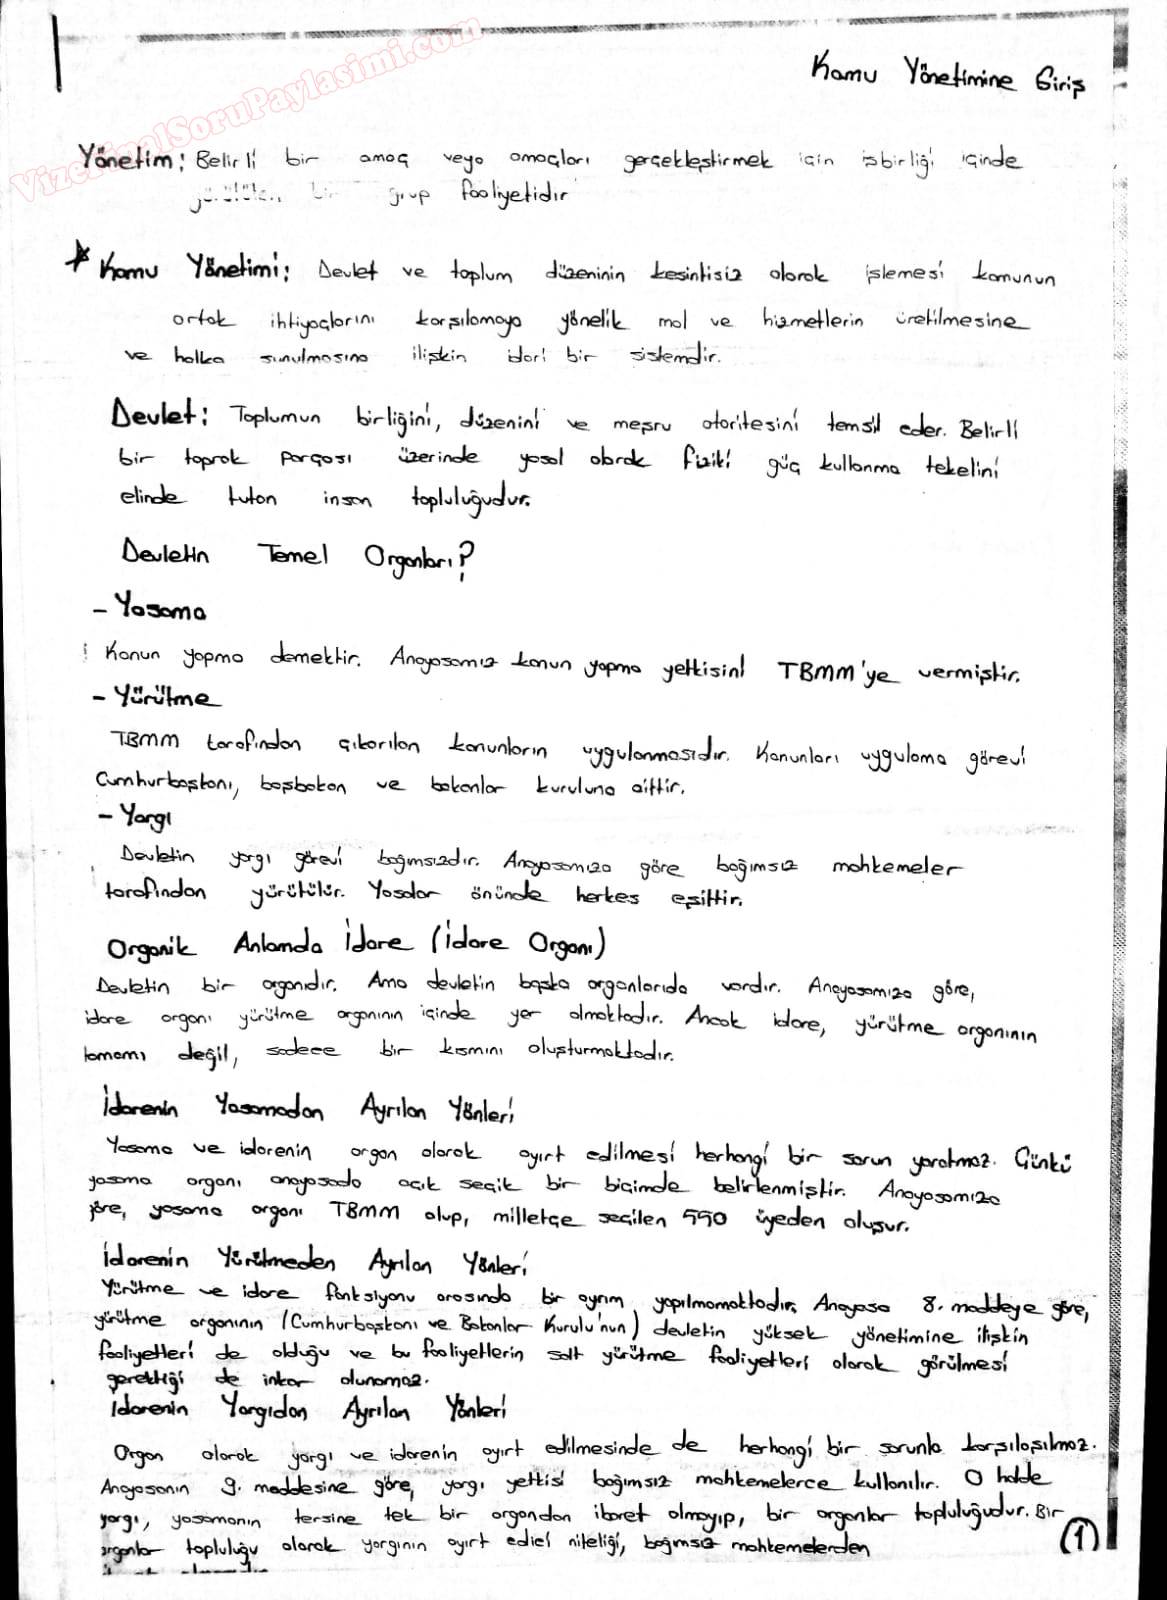 VizeFinalSoruPaylasimi.com
Kamu Yönetimine Giriş
Yönetim: Belirli bir amaç veya amaçları gerçekleştirmek için işbirliği içinde
yürütülen bir grup faaliyetidir
* Kamu Yönetimi: Devlet ve toplum düzeninin kesintisiz olarak işlemesi kamunun
ortak ihtiyaçlarını karşılamaya yönelik mal ve hizmetlerin üretilmesine
ve halka sunulmasına ilişkin idari bir sistemdir.
Devlet: Toplumun birliğini, düzenini ve meşru otoritesini temsil eder. Belirli
bir toprak parçası üzerinde yasal olarak fiziki güç kullanma tekelini
elinde tutan insan topluluğudur.
Devletin Temel Organları?
- Yasama
Kanun yapma demektir. Anayasamız kanun yapma yetkisini TBMM'ye vermiştir.
- Yürütme
TBMM tarafından çıkarılan kanunların uygulanmasıdır. Kanunları uygulama görevi
Cumhurbaşkanı, başbakan ve bakanlar kuruluna aittir.
- Yargı
Devletin yargı görevi bağımsızdır. Anayasamıza göre bağımsız mahkemeler
tarafından yürütülür. Yasalar önünde herkes eşittir.
Organik Anlamda İdare (İdare Organı)
Devletin bir organıdır. Ama devletin başka organlarıda vardır. Anayasamıza göre,
idare organı yürütme organının içinde yer almaktadır. Ancak idare, yürütme organının
tamamı değil, sadece bir kısmını oluşturmaktadır.
İdarenin Yasamadan Ayrılan Yönleri
Yasama ve idarenin organ olarak ayırt edilmesi herhangi bir sorun yaratmaz. Çünkü
yasama organı anayasada açık seçik bir biçimde belirlenmiştir. Anayasamıza
göre, yasama organı TBMM olup, milletçe seçilen 550 üyeden oluşur.
İdarenin Yürütmeden Ayrılan Yönleri
Yürütme ve idare fonksiyonu arasında bir ayrım yapılmamaktadır. Anayasa 8. maddeye göre,
yürütme organının (Cumhurbaşkanı ve Bakanlar Kurulu'nun) devletin yüksek yönetimine ilişkin
faaliyetleri de olduğu ve bu faaliyetlerin salt yürütme faaliyetleri olarak görülmesi
gerektiği de inkar olunamaz.
İdarenin Yargıdan Ayrılan Yönleri
Organ olarak yargı ve idarenin ayırt edilmesinde de herhangi bir sorunla karşılaşılmaz.
Anayasanın 9. maddesine göre, yargı yetkisi bağımsız mahkemelerce kullanılır. O halde
yargı, yasamanın tersine tek bir organdan ibaret olmayıp, bir organlar topluluğudur. Bir
organlar topluluğu olarak yargının ayırt edici niteliği, bağımsız mahkemelerden
(1)